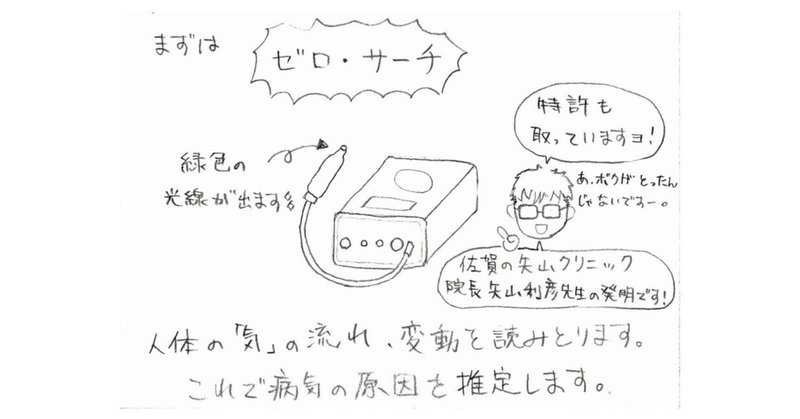 まずは
ゼロ・サーチ
特許も
取っていますヨ!
緑色の
光線が出ます
あ、ボクがとったん
じゃないですー。
佐賀の矢山クリニック
院長矢山利彦先生の発明です!
人体の「気」の流れ、変動を読みとります。
これで病気の原因を推定します。